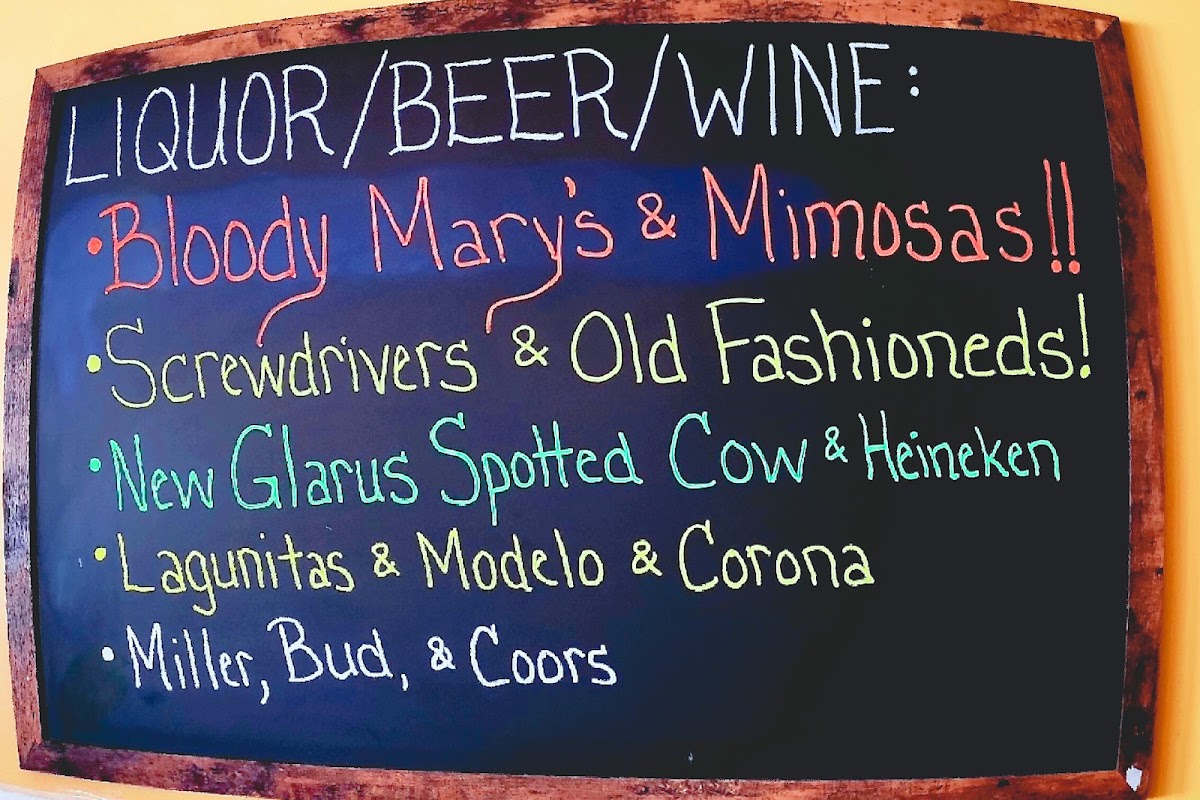 LIQUOR/BEER/WINE:
• Bloody Mary's & Mimosas!!
• Screwdrivers & Old Fashioneds!
• New Glarus Spotted Cow & Heineken
• Lagunitas & Modelo & Corona
• Miller, Bud, & Coors